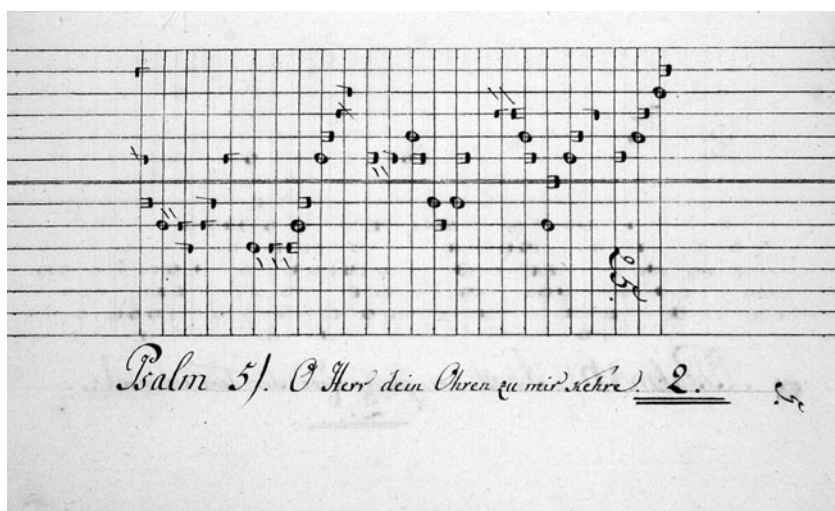 25.
Psalm 5). O Herr dein Ohren zu mir kehre. 2.
5.